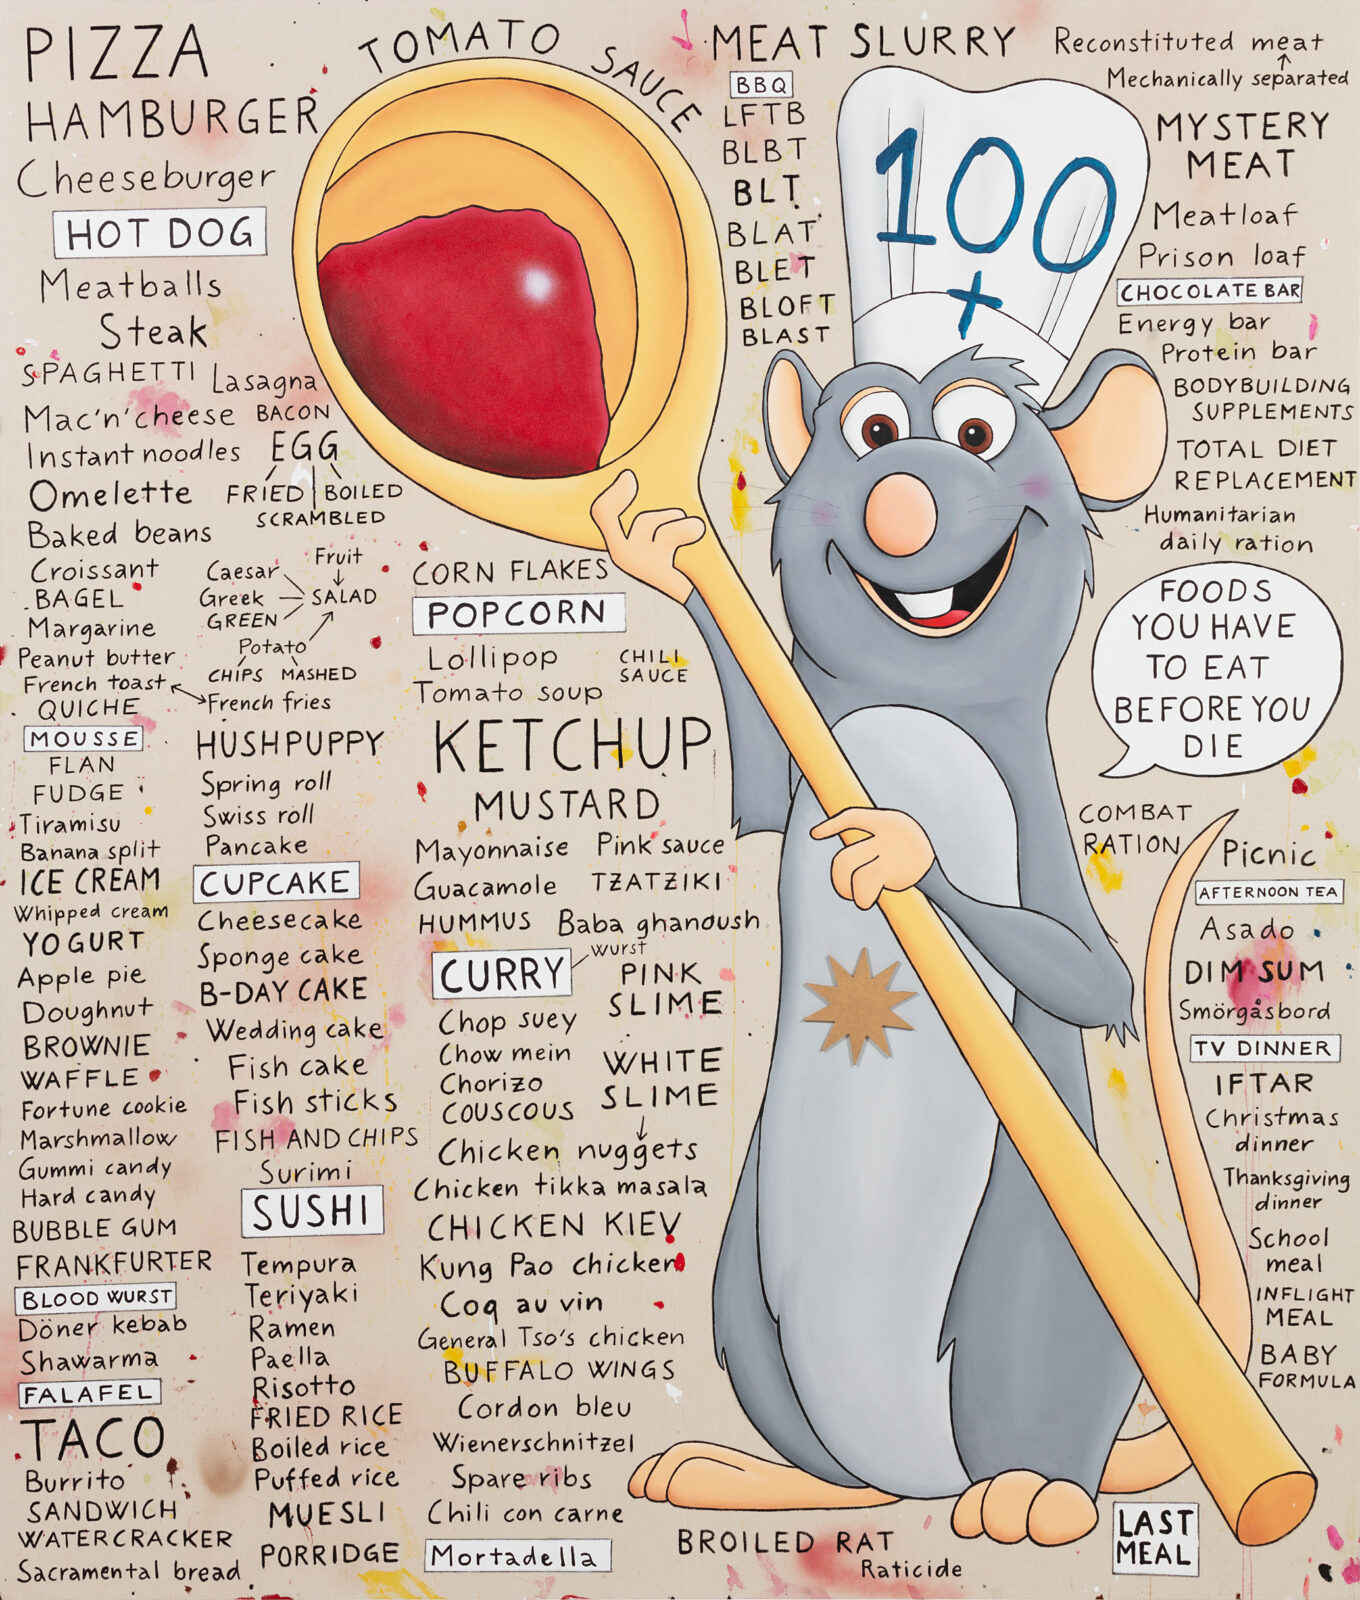 PIZZA
HAMBURGER
Cheeseburger
HOT DOG
Meatballs
Steak
SPAGHETTI
Lasagna
Mac'n'cheese
BACON
Instant noodles
EGG
Omelette
FRIED
BOILED
SCRAMBLED
Baked beans
Croissant
BAGEL
Margarine
Peanut butter
French toast
QUICHE
MOUSSE
FLAN
FUDGE
Tiramisu
Banana split
ICE CREAM
Whipped cream
YOGURT
Apple pie
Doughnut
BROWNIE
WAFFLE
Fortune cookie
Marshmallow
Gummi candy
Hard candy
BUBBLE GUM
FRANKFURTER
BLOOD WURST
Döner kebab
Shawarma
FALAFEL
TACO
Burrito
SANDWICH
WATERCRACKER
Sacramental bread
Fruit
Caesar
Greek
SALAD
GREEN
Potato
CHIPS
MASHED
French fries
HUSHPUPPY
Spring roll
Swiss roll
Pancake
CUPCAKE
Cheesecake
Sponge cake
B-DAY CAKE
Wedding cake
Fish cake
Fish sticks
FISH AND CHIPS
Surimi
SUSHI
Tempura
Teriyaki
Ramen
Paella
Risotto
FRIED RICE
Boiled rice
Puffed rice
MUESLI
PORRIDGE
TOMATO SAUCE
CORN FLAKES
POPCORN
Lollipop
CHILI
SAUCE
Tomato soup
KETCHUP
MUSTARD
Mayonnaise
Pink sauce
Guacamole
TZATZIKI
HUMMUS
Baba ghanoush
CURRY
wurst
PINK
SLIME
Chop suey
Chow mein
Chorizo
COUSCOUS
WHITE
SLIME
Chicken nuggets
Chicken tikka masala
CHICKEN KIEV
Kung Pao chicken
Coq au vin
General Tso's chicken
BUFFALO WINGS
Cordon bleu
Wienerschnitzel
Spare ribs
Chili con carne
Mortadella
MEAT SLURRY
BBQ
LFTB
BLBT
BLT
BLAT
BLET
BLOFT
BLAST
100
+
Reconstituted meat
Mechanically separated
MYSTERY
MEAT
Meatloaf
Prison loaf
CHOCOLATE BAR
Energy bar
Protein bar
BODYBUILDING
SUPPLEMENTS
TOTAL DIET
REPLACEMENT
Humanitarian
daily ration
FOODS
YOU HAVE
TO EAT
BEFORE YOU
DIE
COMBAT
RATION
Picnic
AFTERNOON TEA
Asado
DIM SUM
Smörgåsbord
TV DINNER
IFTAR
Christmas
dinner
Thanksgiving
dinner
School
meal
INFLIGHT
MEAL
BABY
FORMULA
BROILED RAT
Raticide
LAST
MEAL